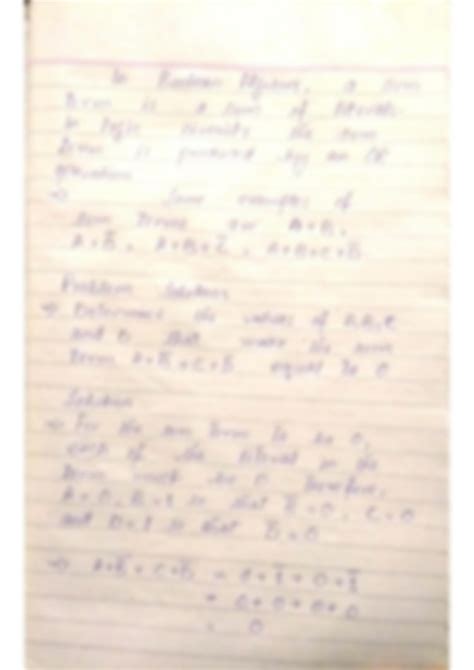 In Boolean Algebra, a sum
term is a sum of literals.
In logic circuits the sum
term is produced by an OR
operation
→ Some examples of
sum terms are A+B,
A+B̅, A+B+C̅, A+B+C+D̅
Problem Solution
→ Determine the values of A,B,C
and D that make the sum
term A+B̅+C+D̅ equal to 0
Solution
→ For the sum term to be 0,
each of the literal in the
term must be 0. Therefore,
A=0, B=1 so that B̅=0, C=0
and D=1 so that D̅=0
→ A+B̅+C+D̅ = 0+1̅+0+1̅
= 0+0+0+0
= 0